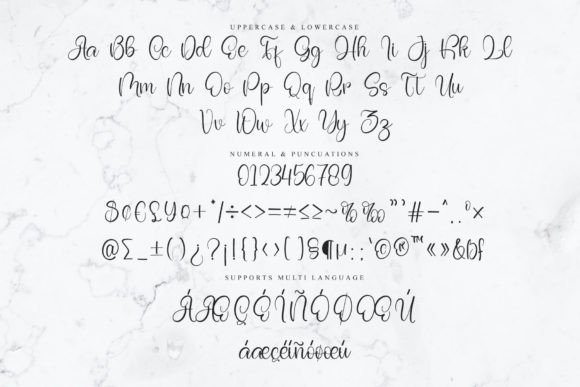 UPPERCASE & LOWERCASE
Aa Bb Cc Dd Ee Ff Gg Hh Ii Jj Kk Ll
Mm Nn Oo Pp Qq Rr Ss Tt Uu
Vv Ww Xx Yy Zz
NUMERAL & PUNCUATIONS
0123456789
$¢€£¥¤+*/÷<>=≠≤≥~%‰”’#-^.,º×
@∑_±()¿?¡!{}‹›[]§¶µ:;‘©®™«»&
SUPPORTS MULTI LANGUAGE